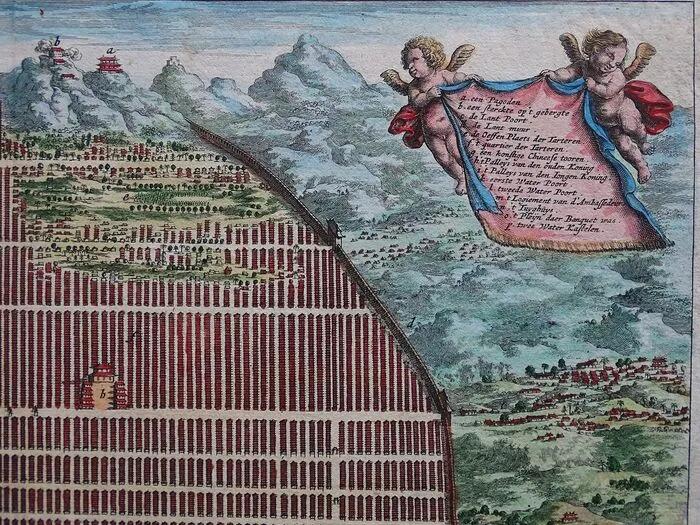 b
a
a. een Pagoden
b. een sterckte op't gebergte
c. de Lant Poort
d. de Lant muur
e. de Oeffen Plaets der Tarteren
f. t quartier der Tarteren
een konstige Chineese tooren
Palleys van den ouden Koning
t Palleys van den Iongen Koning
eerste Water Poort
tweede Water Poort
m. t Logiement van d'Ambassadeur
n.
o. t Pleyn daer Banquet was
twee Water Kastelen
e
d
f
h